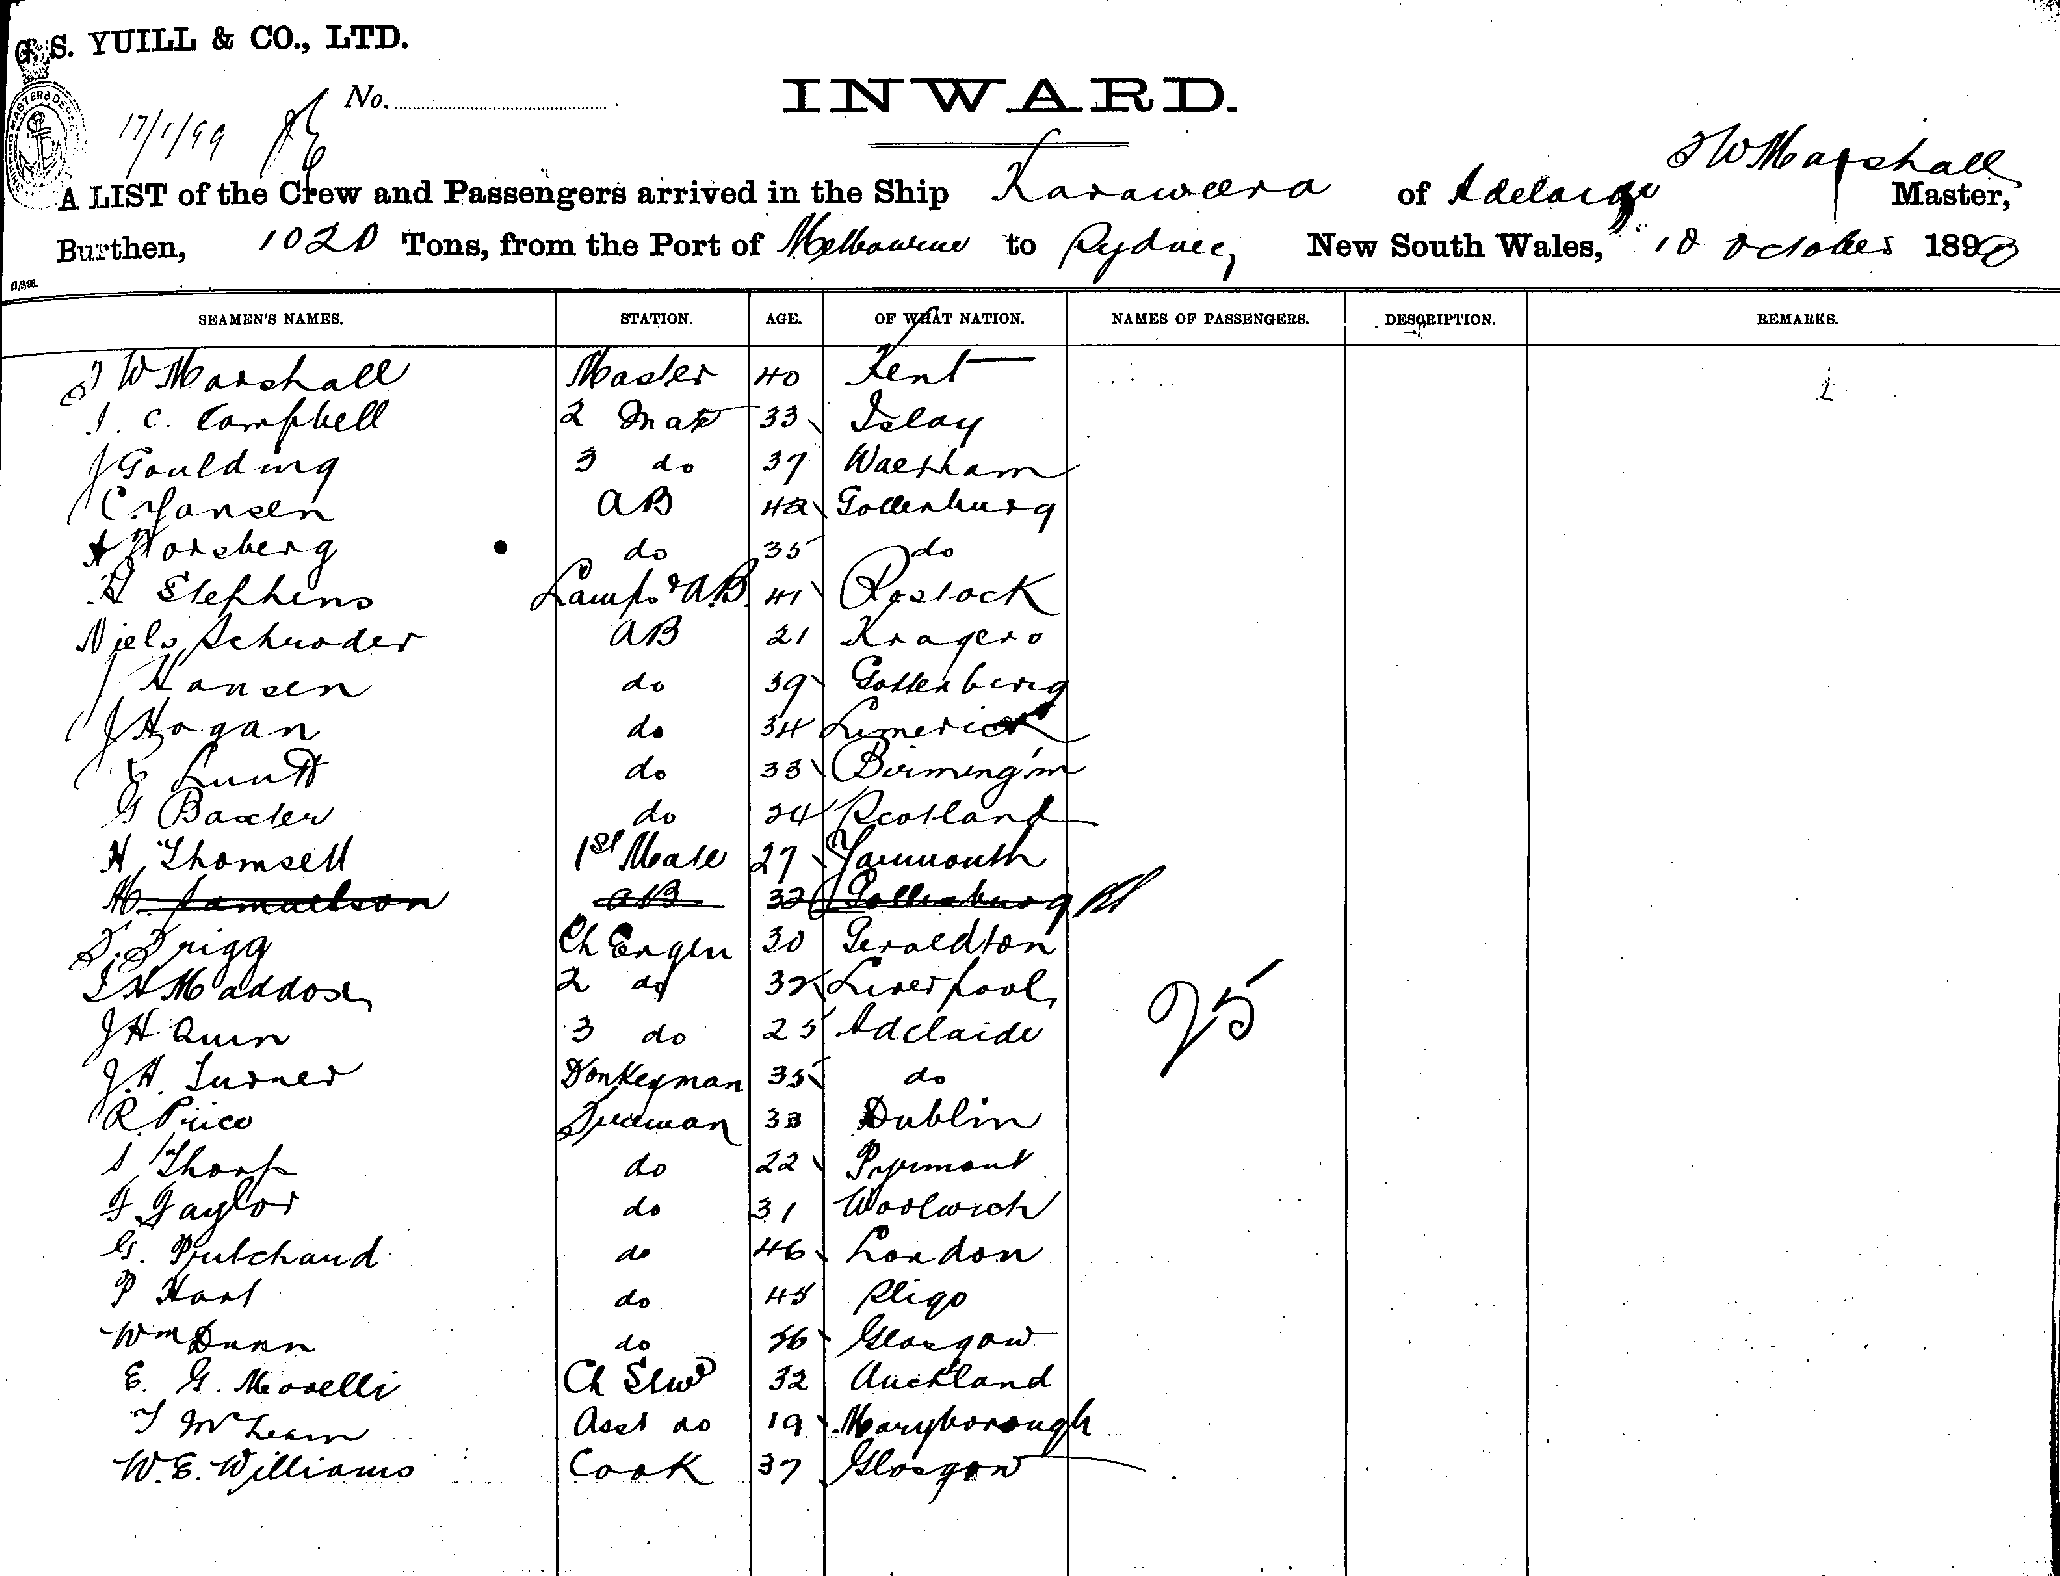 G. S. YUILL & CO., LTD.
No.
INWARD.
17/1/99
J W Marshall
A LIST of the Crew and Passengers arrived in the Ship Karaweera of Adelaide Master,
Burthen, 1020 Tons, from the Port of Melbourne to Sydney, New South Wales, 10 October 1898
SEAMEN'S NAMES. STATION. AGE. OF WHAT NATION. NAMES OF PASSENGERS. DESCRIPTION. REMARKS.
J W Marshall Master 40 Kent
J. C. Campbell 2 Mate 33 Islay
J Goulding 3 do 37 Waltham
C. Jansen AB 42 Gottenburg
A Forsberg do 35 do
H Stephens Lamps & A.B. 41 Rostock
Niels Schroder AB 21 Kragero
J Hansen do 39 Gottenburg
J Hogan do 34 Limerick
E Lunt do 33 Birming'm
G Baxter do 24 Scotland
H Thomsett 1st Mate 27 Yarmouth
M. Samuelson AB 32 Gottenburg
S. Trigg Ch Engin 30 Geraldton
J H Maddox 2 do 32 Liverpool
J H Quin 3 do 25 Adelaide
25
J. H. Turner Donkeyman 35 do
R. Price Fireman 33 Dublin
S Thorp do 22 Pyrmont
F Taylor do 31 Woolwich
G. Pritchard do 46 London
P Hart do 45 Sligo
Wm Dunn do 36 Glasgow
E. G. Morelli Ch Stwd 32 Auckland
T McLean Asst do 19 Maryborough
W. E. Williams Cook 37 Glasgow